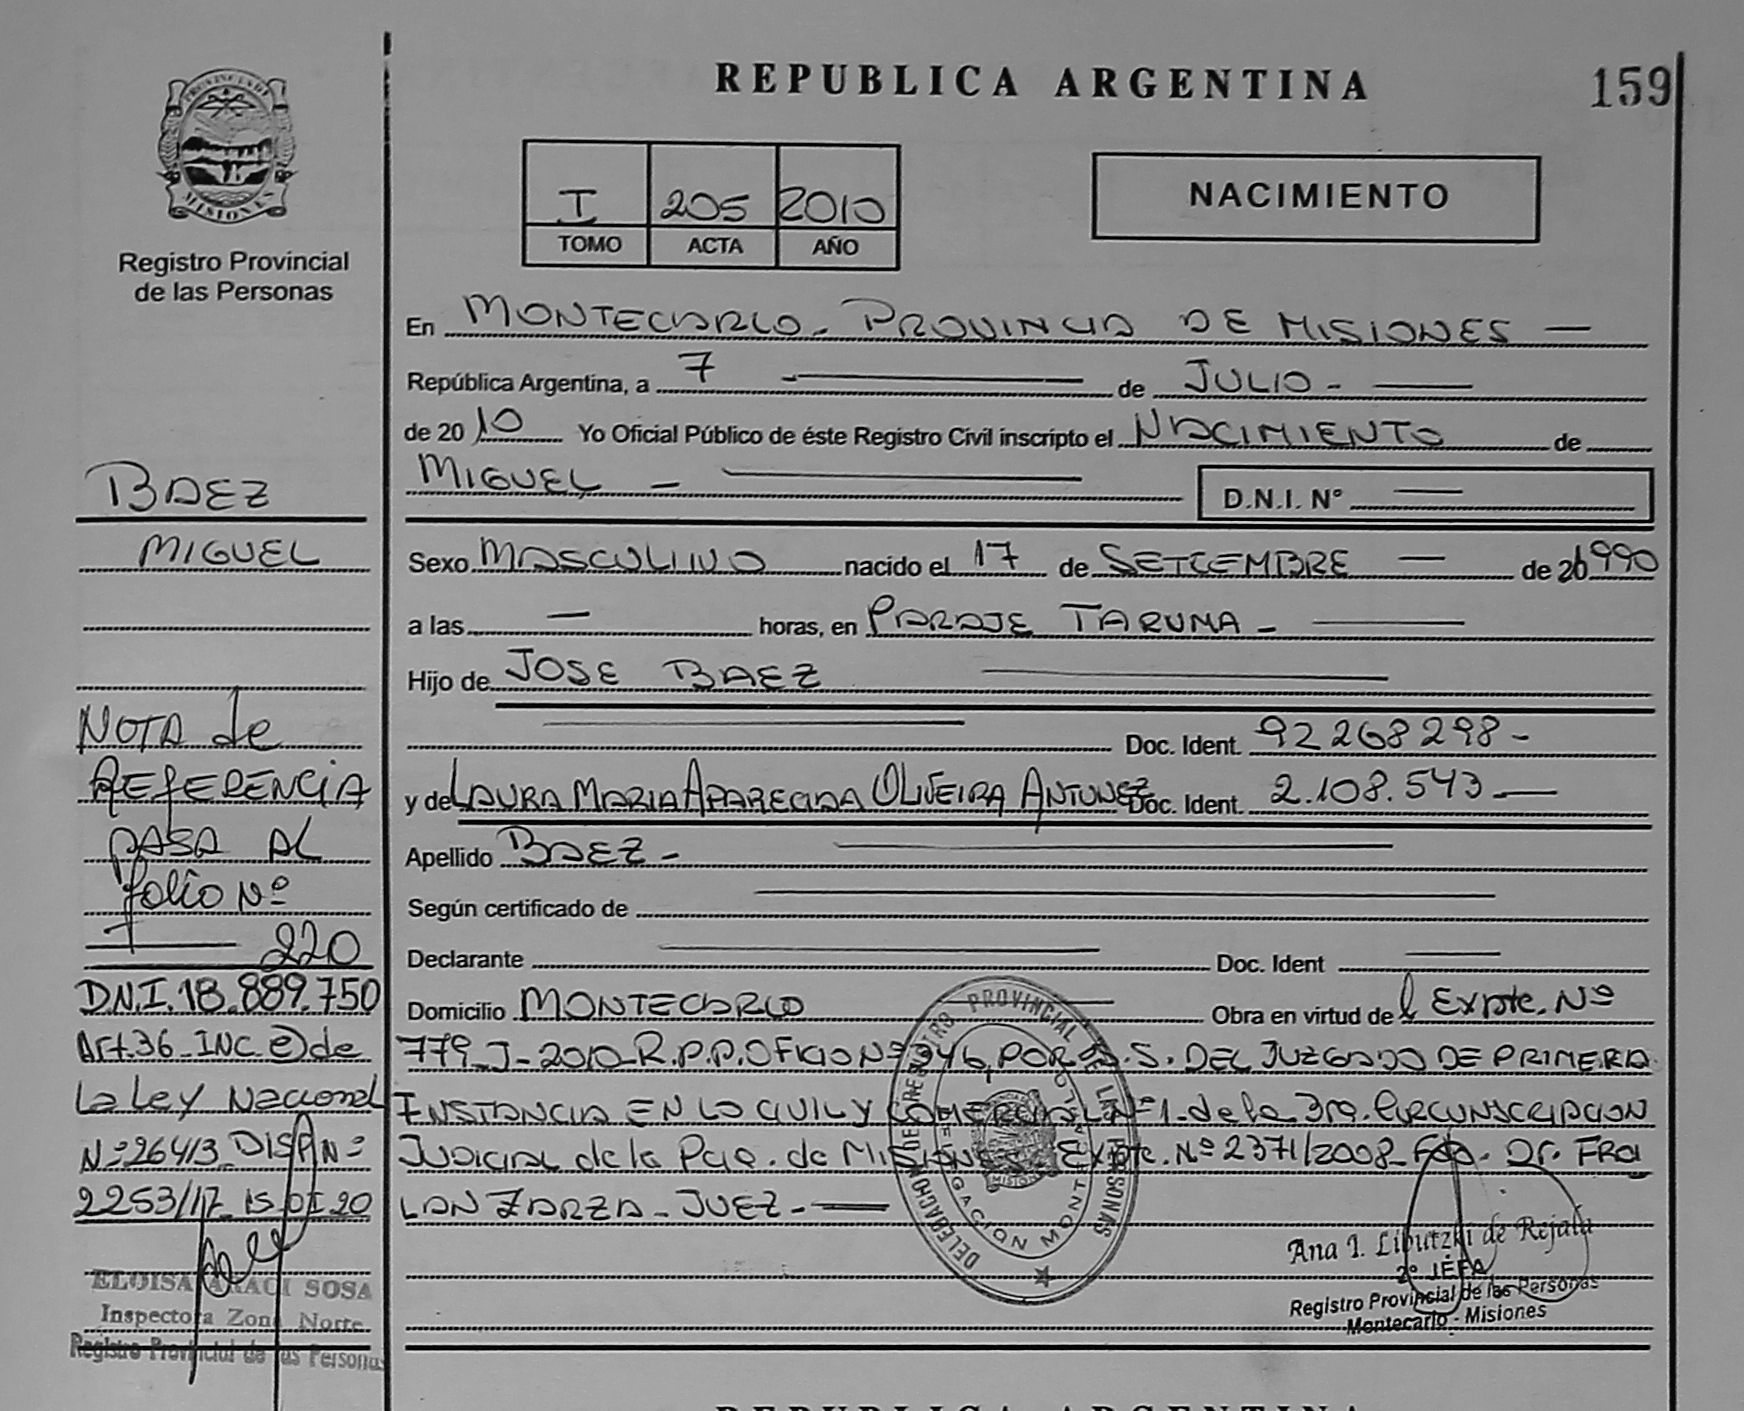 REPUBLICA ARGENTINA
159
PROVINCIA DE
MISIONES
Registro Provincial
de las Personas
I 205 2010
TOMO ACTA AÑO
NACIMIENTO
En MONTECARLO - PROVINCIA DE MISIONES —
República Argentina, a 7 - — de JULIO - —
de 20 10 Yo Oficial Público de éste Registro Civil inscripto el NACIMIENTO de
MIGUEL - — D.N.I. Nº —
Sexo MASCULINO nacido el 17 de SETIEMBRE — de 1990
a las — horas, en PARAJE TARUMA - —
Hijo de JOSE BAEZ —
— Doc. Ident. 92268298-
y de LAURA MARIA APARECIDA OLIVEIRA ANTUNEZ Doc. Ident. 2.108.543 —
Apellido BAEZ - —
Según certificado de —
Declarante — Doc. Ident —
Domicilio MONTECARLO — Obra en virtud del Expte. Nº
779-J-2010-R.P.P. OFICIO Nº 946, POR S.S. DEL JUZGADO DE PRIMERA
INSTANCIA EN LO CIVIL Y COMERCIAL Nº1- de la 3ra. CIRCUNSCRIPCION
JUDICIAL de la Pcia. de MISIONES - Expte. Nº 2371/2008- Fdo- Dr. FROI
LAN ZARZA - JUEZ - —
BAEZ
MIGUEL
NOTA de
REFERENCIA
PASA AL
folio Nº
— 220
D.N.I. 18.889.750
Art. 36 - INC. e) de
La Ley Nacional
Nº 26413 - DISP. Nº
2253/17 15 01 20
ELOISA ARACI SOSA
Inspectora Zona Norte
Registro Provincial de las Personas
DELEGACION DE REGISTRO PROVINCIAL DE LAS PERSONAS
MISIONES
Ana I. Libutzki de Rejala
2º JEFA
Registro Provincial de las Personas
Montecarlo - Misiones
REPUBLICA ARGENTINA